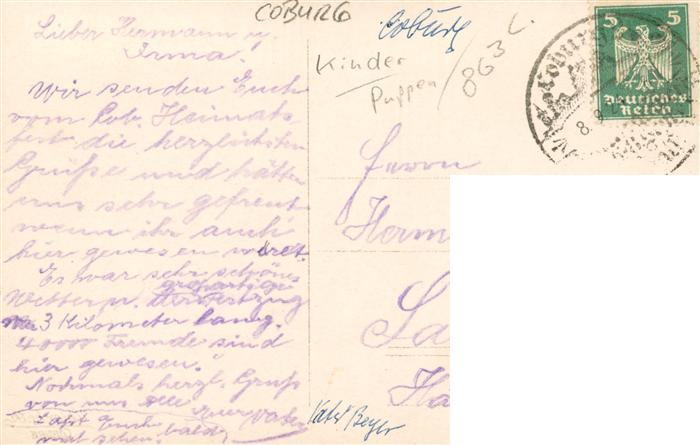 COBURG
Coburg
Kinder
Puppen
863 L.
5 5
Deutsches
Reich
Lieber Hermann u.
Irma!
Wir senden Euch
vom Cob. Heimats
fest die herzlichsten
Grüße und hätten
uns sehr gefreut
wenn ihr auch
hier gewesen wäret.
Es war sehr schönes
Wetter u. großartiger
3 Kilometer lang.
40000 Fremde sind
hier gewesen.
Nochmals herzl. Gruß
von uns Alle
Euer Vater
Laßt Euch bald
mal sehen.
Herrn
Herm
Sa
Ha
Beyer